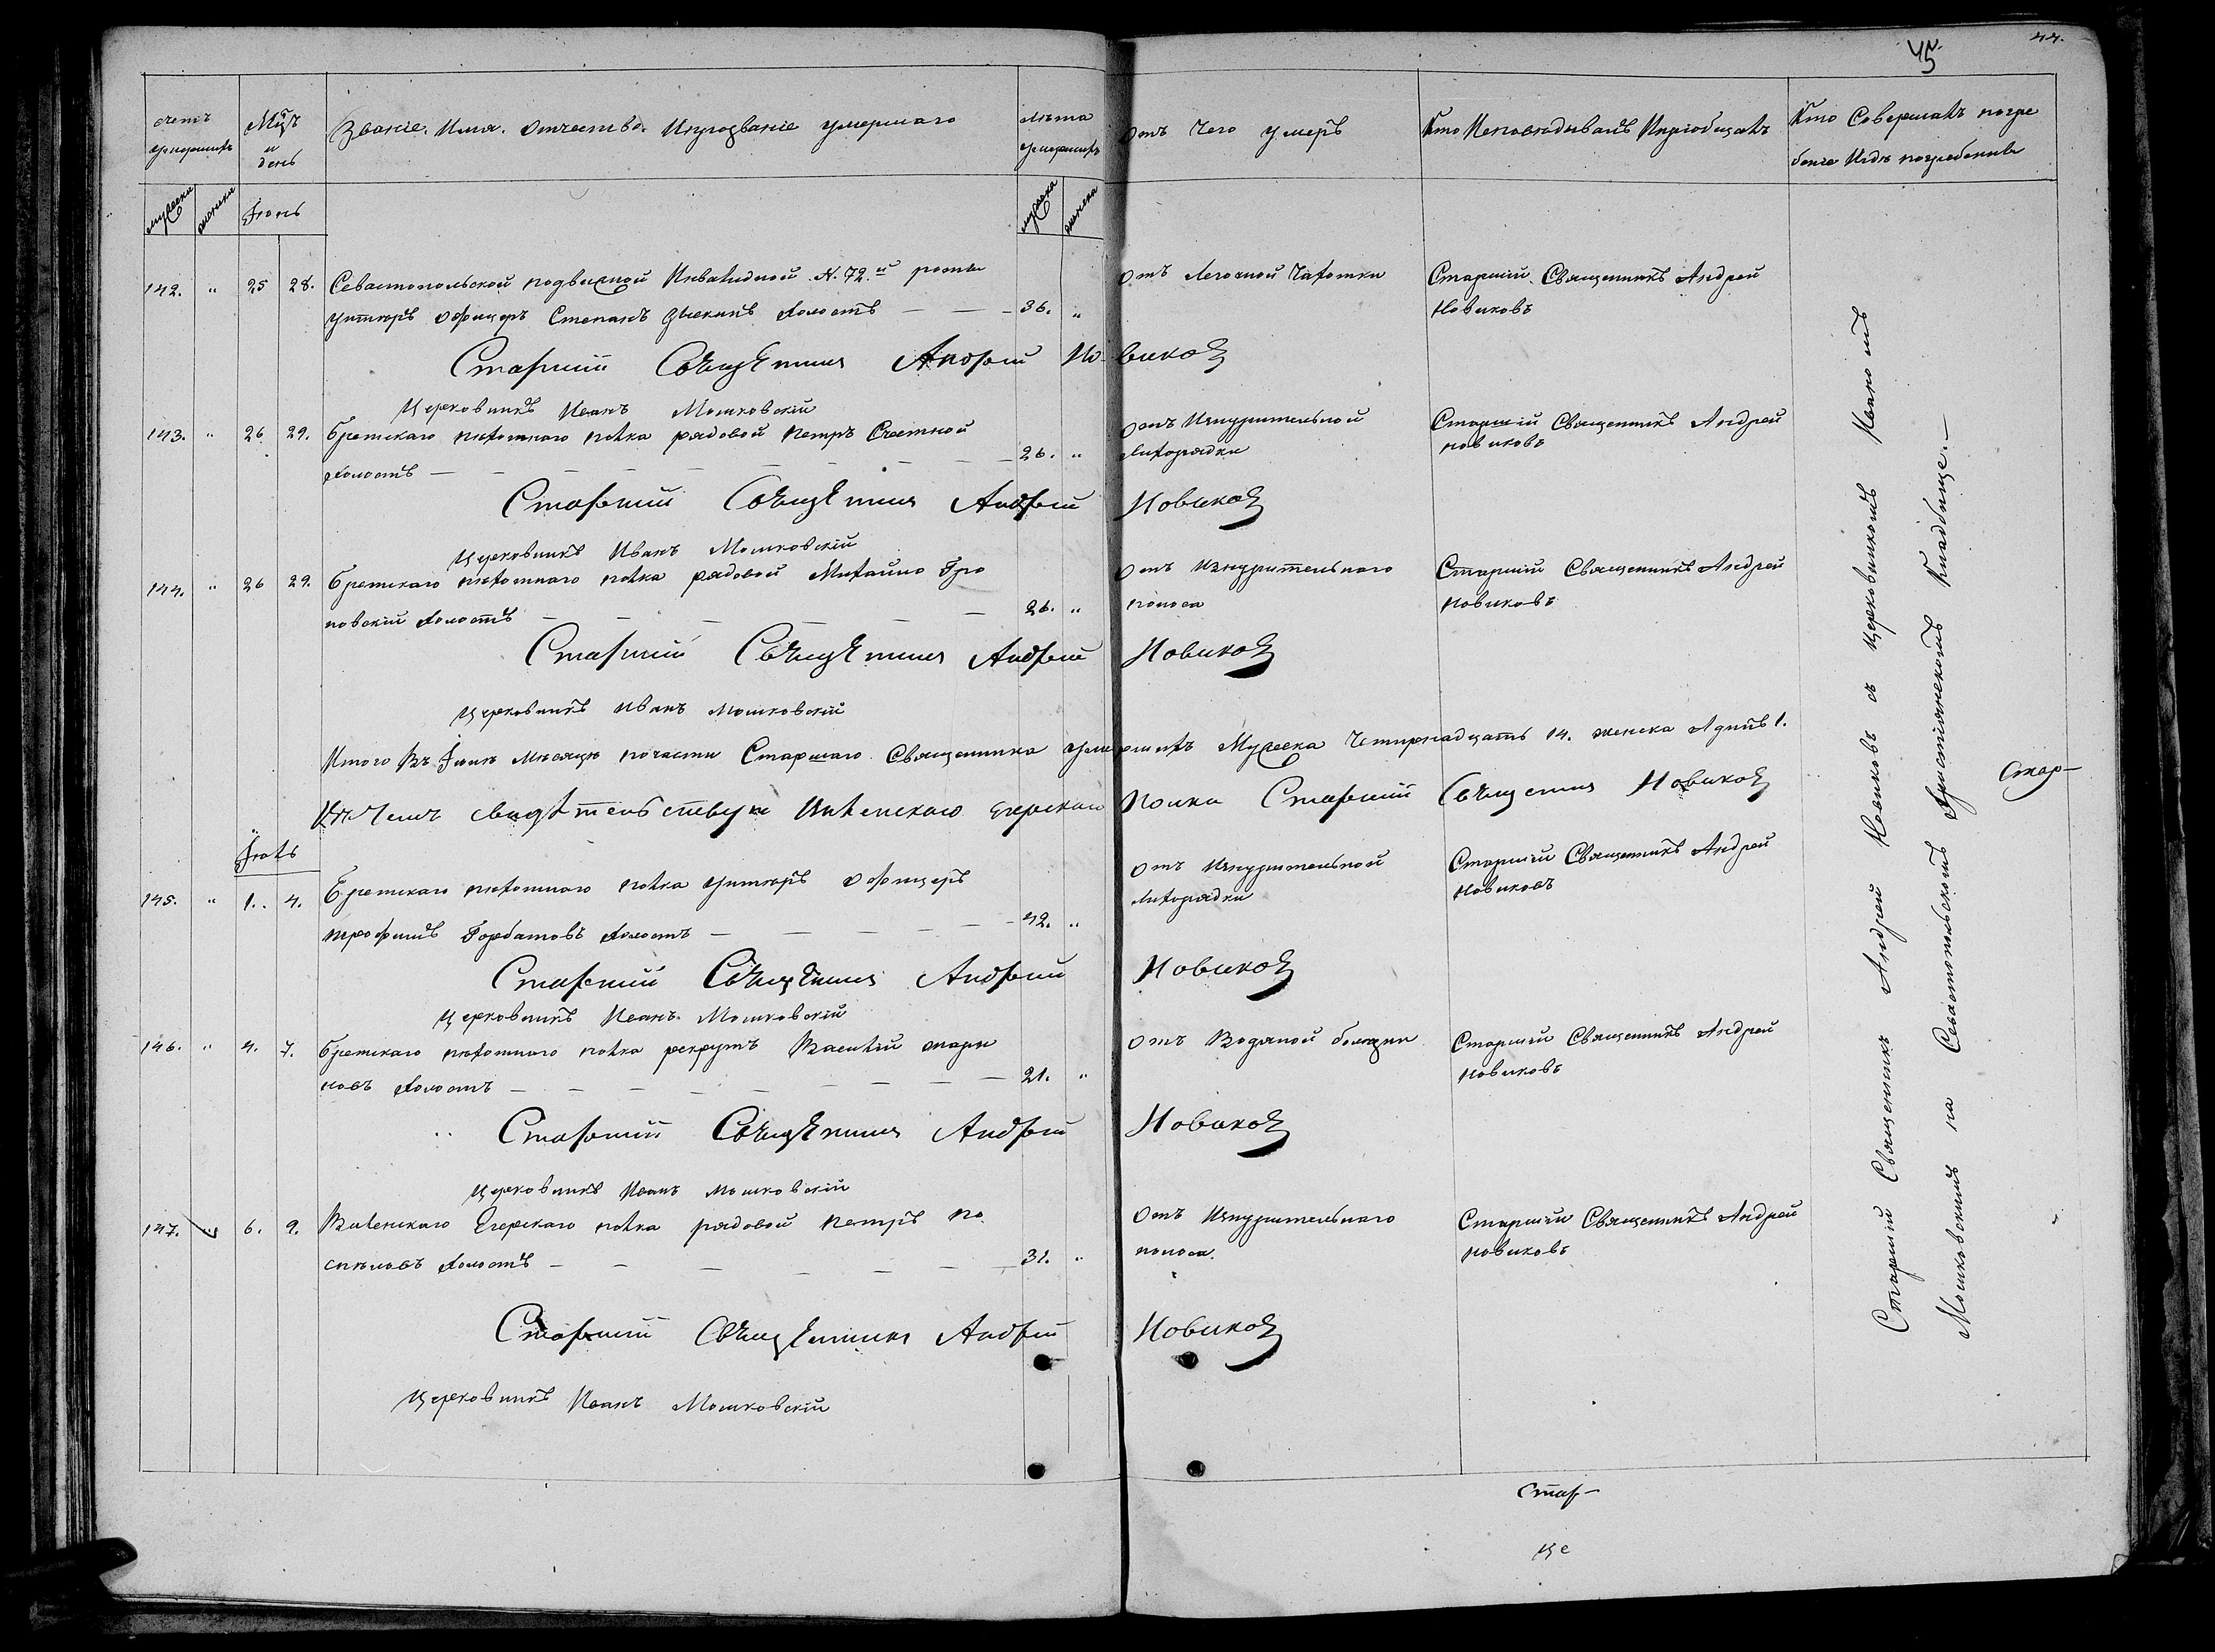 45
44.
счетъ умершихъ
Мц҃ъ и день
Званіе. Имя. Отчество. Ипрозваніе умершаго
лѣта умершихъ
Отъ Чего умеръ
Кто Исповѣдывалъ Ипріобщалъ
Кто Совершалъ погре
беніе Игдѣ погребенны
мужеска
женска
Іюнь
мужеска
женска
142. " 25 28. Севастопольской подвижной Инвалидной N. 72.й роты
унтеръ офицеръ Степанъ холостъ — — — 36. "
Отъ Легочной Чахотки
Старшій Священникъ Андрей
Новиковъ
Старшій Священникъ Андрей Новиковъ
Церковникъ Иванъ Мошковскій
143. " 26 29. Брестскаго пѣхотнаго полка рядовой Петръ Счастной
холостъ — — — — — — — — 26. "
Отъ Изнурительной
Лихорадки
Старшій Священникъ Андрей
Новиковъ
Старшій Священникъ Андрей Новиковъ
Церковникъ Иванъ Мошковскій
144. " 26 29. Брестскаго пѣхотнаго полка рядовой Михайло Гро
новскій холостъ — — — — — — 26. "
Отъ Изнурительнаго
поноса
Старшій Священникъ Андрей
Новиковъ
Старшій Священникъ Андрей Новиковъ
Церковникъ Иванъ Мошковскій
Итого Въ Іюнѣ Мѣсяцѣ почасти Старшаго Священника умершихъ Мужеска Четырнадцать 14. женска Адинъ 1.
Въ Чемъ свидѣтельствую Виленскаго Егерскаго Полка Старшій Священникъ Новиковъ
Іюль
145. " 1. 4. Брестскаго пѣхотнаго полка унтеръ офицеръ
Трофимъ Горбатовъ холостъ — — — — — 42. "
Отъ Изнурительной
Лихорадки
Старшій Священникъ Андрей
Новиковъ
Старшій Священникъ Андрей Новиковъ
Церковникъ Иванъ Мошковскій
146. " 4. 7. Брестскаго пѣхотнаго полка рекрутъ Василій
новъ холостъ — — — — — — — — 21. "
Отъ Водяной болезни
Старшій Священникъ Андрей
Новиковъ
Старшій Священникъ Андрей Новиковъ
Церковникъ Иванъ Мошковскій
147. 6. 9. Виленскаго Егерскаго полка рядовой Петръ По
спѣловъ холостъ — — — — — — — 31. "
Отъ Изнурительнаго
поноса.
Старшій Священникъ Андрей
Новиковъ
Старшій Священникъ Андрей Новиковъ
Церковникъ Иванъ Мошковскій
Старшій Священникъ Андрей Новиковъ съ церковникомъ Иваномъ
Мошковскимъ на Севастопольскомъ Христіянскомъ Кладбище. —
Стар—
Стар—
Це